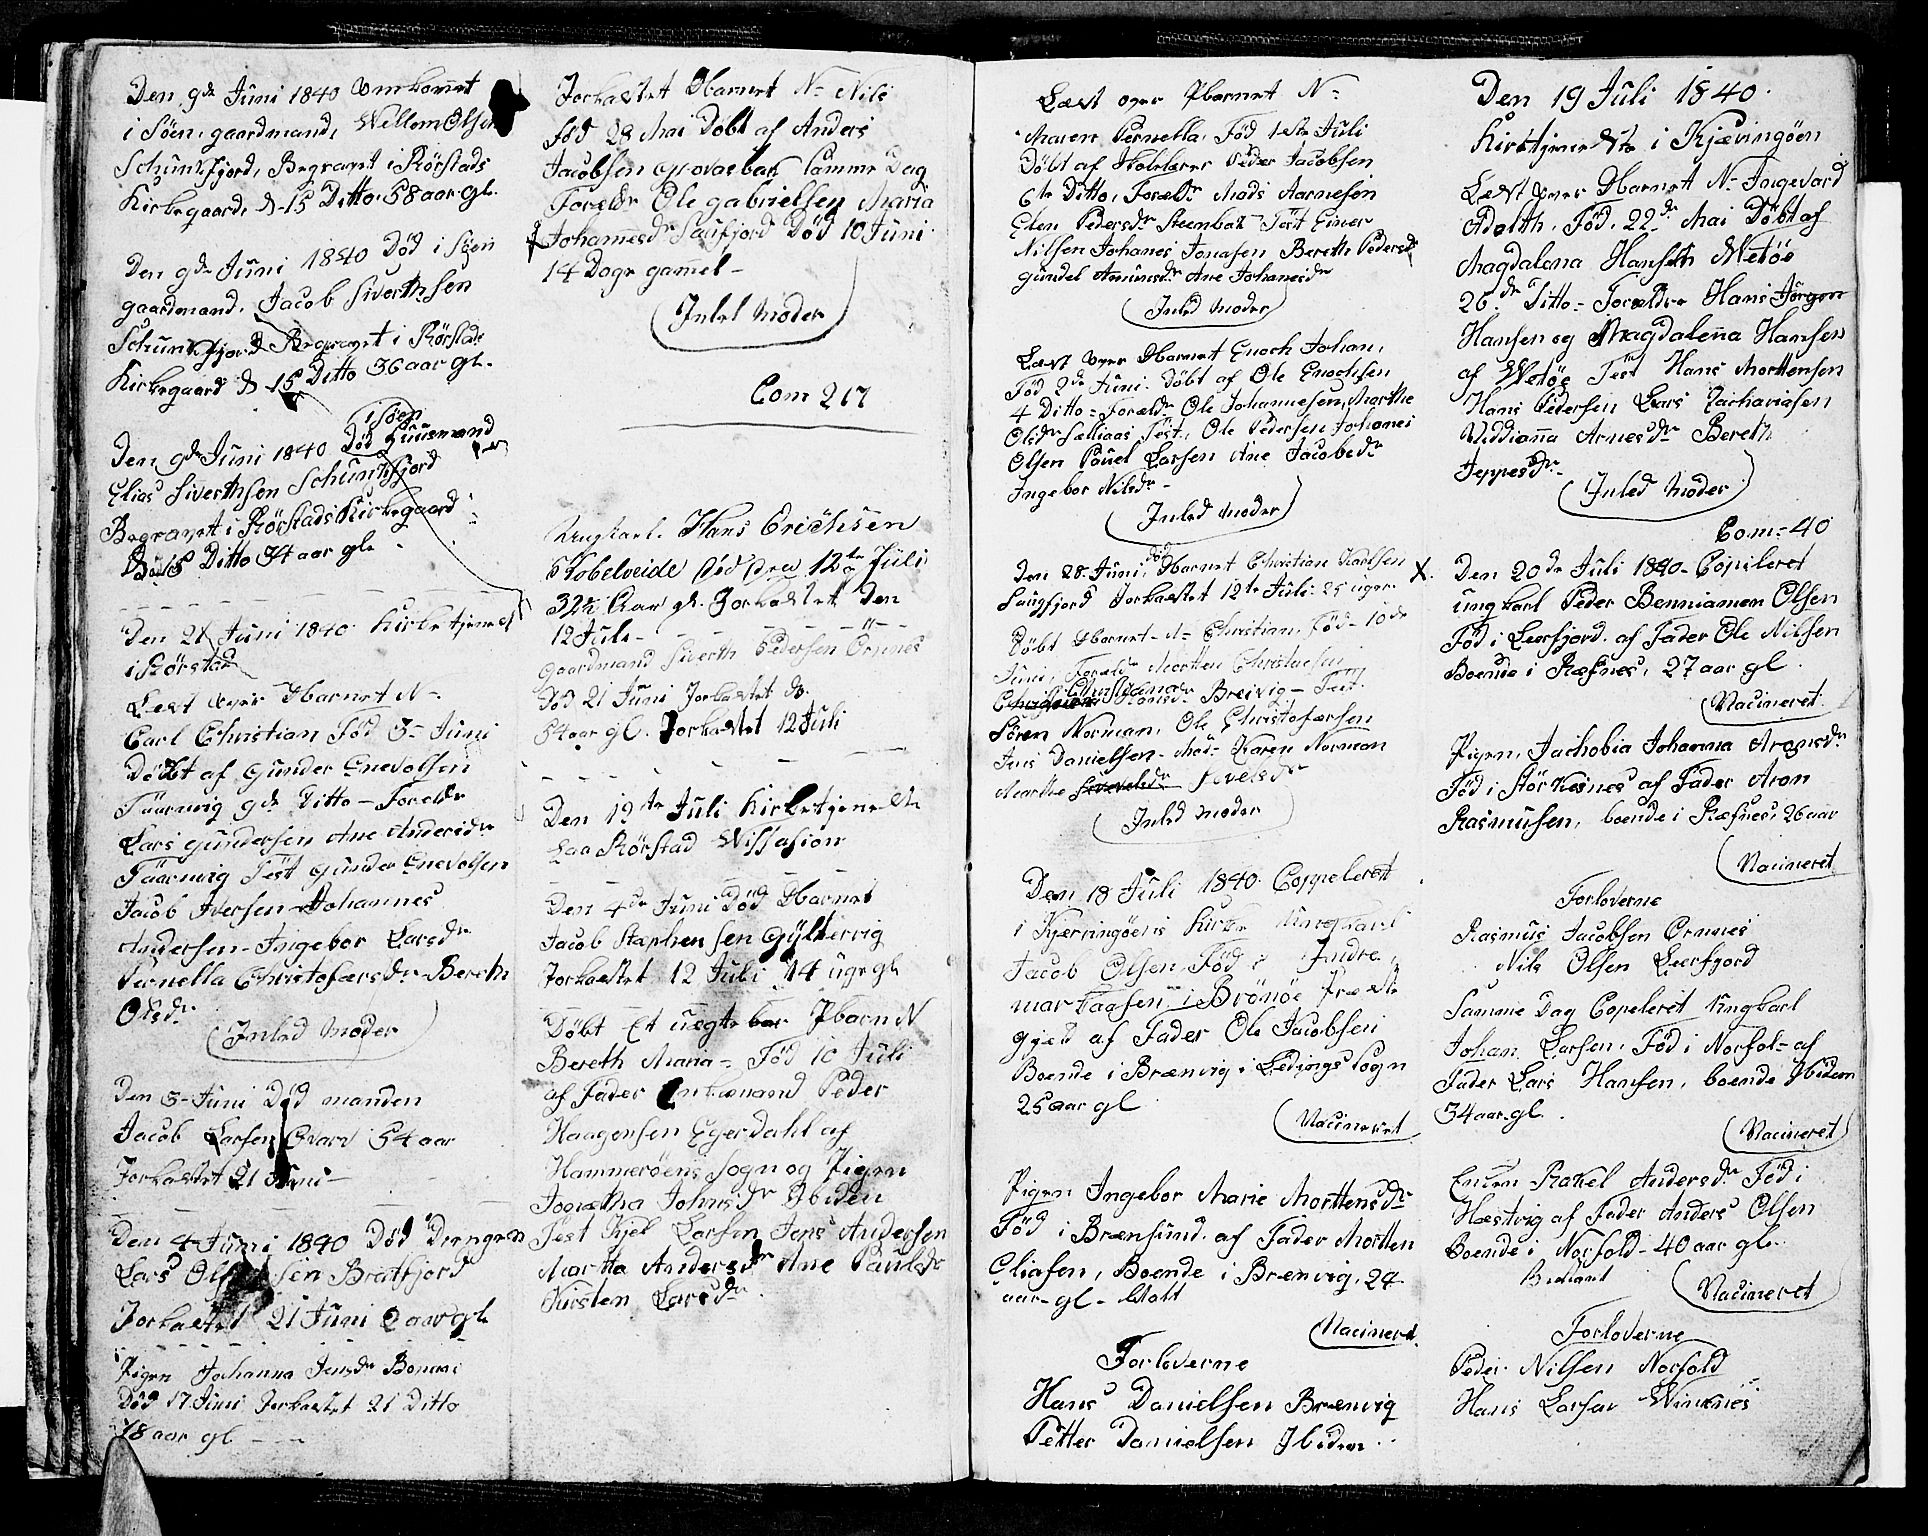 Den 9de Juni 1840 omkommet
i Söen, gaardmand, Wellom Olsen
Schunkfjord, Begravet i Rörstads
Kirkegaard, d. 15 Ditto 58 aar gl.
Den 9de Juni 1840 Död i Söen
gaardmand, Jacob Siverthsen
Schunkfjord Begravet i Rörstads
Kirkegaard d 15 Ditto 36 aar gl.
i Söen
Den 9de Juni 1840 Död Huusmand
Elias Siverthsen Schunkfjord
Begravet i Rörstads Kirkegaard
Ditto 34 aar gl.
Den 21 Juni 1840 Kirketjeneste
i Rörstad
Lest over Hbarnet N=
Carl Christian Föd 3= Juni
Döbt af Gunder Enevolsen
Taarnvig 9de Ditto - Foreldre
Lars Gundersen Ane Andersdr
Taarnvig Test Gunder Enevolsen
Jacob Iversen Johannes
Andersen - Ingebor Larsdr
Pernella Christofersdr Bereth
Olsdr
Inled Moder
Den 3 Juni Död manden
Jacob Larsen 54 aar
Jorkastet 21 Juni
Den 4 Juni 1840 Död Drengen
Lars Olsen Bratfjord
Jorkastet 21 Juni 2 aar gl
Pigen Johanna Jensdr Bonnasi
Död 17 Juni Jorkastet 21 Ditto
78 aar gl
Jorkastet Hbarnet N= Nils
föd 28 Mai Döbt af Anders
Jacobsen Giovaebak samme Dag
Foreldre Ole Gabrielsen Maria
Johannesdr Laufjord Död 10 Juni
14 Dage gammel
Inled Moder
Com 217
Ungkarl. Hans Erichsen
Kobelveide Död 12te Juli
32½ Aar gl. Jorkastet Den
12 Juli
Gaardmand Siverth Pedersen Örnnes
Död 21 Juni Jorkastet do.
54 aar gl. Jorkastet 12 Juli
Den 12te Juli Kirketjeneste
paa Rörstad Wissasion
Den 4de Juni Död Hbarnet
Jacob Stephensen Gyltervig
Jorkastet 12 Juli 14 uge gl
Döbt Et uegte Pbarn N
Bereth Maria = Föd 10 Juli
af Fader Enkemand Peder
Haagensen Egerdahl af
Hammeröens Sogn og Pigen
Jonetha Johnsdr Ibiden
Test Kjel Larsen Jens Andersen
Martha Andersdr Ane Paulsdr
Kirsten Larsdr
Læst over Pbarnet N=
Maren Pernella, Föd 1ste Juli
Döbt af Skolelærer Peder Jacobsen
6te Ditto, Foreldr Mads Aarnesen
Elen Pedersdr Steenbak Test Einer
Nilsen Johanes Jonasen Bereth Pedersdr
Gundel Amunsdr Ane Johanesdr
Inled Moder
Læst over Hbarnet Enoch Johan,
Föd 2de Juni. Döbt af Ole Enochsen
4 Ditto = Foreldr Ole Johannesen, Marthe
Olsdr Sælliaas Test. Ole Pedersen Johanes
Olsen Pauel Larsen Ane Jacobsdr
Ingebor Nilsdr
Inled Moder
Den 28 Juni, död Hbarnet Christian Karlsen
Laugfjord Jorkastet 12te Juli 25 uger
Döbt Hbarnet N= Christian, Föd 10de
Juni, Foreldr Morten Christensen
Breivig - Test
Sören Norman, Ole Christofersen
Jens Danielsen - Mad= Karen Norman
Marthe Sivelsdr
Inled Moder
Den 18 Juli 1840. Coppeleret
i Kjerringöens Kirke Ungkarl
Jacob Olsen Föd i Indre,
i Brönöe Præste
gjæd af Fader Ole Jacobsen
Boende i Brænvig i Ledings Sogn
25 aar gl
Vacineret
Pigen Ingebor Marie Morttensdr
Föd i Brænsund. af Fader Mortten
Eliasen, Boende i Brænvig, 24
aar gl
Vacineret
Forloverne
Hans Danielsen Brænvig
Petter Danielsen Ibidem
Den 19 Juli 1840
Kirktjeneste i Kjæringöen
Lest over Hbarnet N= Ingevard
Adolth. Föd. 22de Mai Döbt af
Magdalena Hansen Wetöe
26de Ditto - Foreldre Hans Jörgen
Hansen og Magdalenna Hansen
af Wetöe Test Hans Morttensen
Hans Pedersen Lars Zachariasen
Widdianna Arnesdr Bereth
Jeppesdr
Inled Moder
Com = 40
X. Den 20de Juli 1840 - Copileret
ungkarl Peder Benniamen Olsen
Föd i Leerfjord. af Fader Ole Nilsen
Boende i Ræfnes, 27 aar gl.
Vacineret
Pigen, Jachobia Johanna Aronsdr
Föd i Störkesnes af Fader Aron
Rasmusen, boende i Ræfnes, 26 aar
Vacineret
Forloverne
Rasmus Jacobsen Ornnes
Nils Olsen Leerfjord
Samme Dag Copeleret Ungkarl
Johan Larsen, Föd i Norfol= af
Fader Lars Hansen, boende Ibidem
34 aar gl.
Vacineret
Enken Rakel Andersdr Föd i
Hestvig af Fader Anders Olsen
Boende i Norfold - 40 aar gl.
Vacineret
Forloverne
Peder Nilsen Norfold
Hans Larsen Winknes